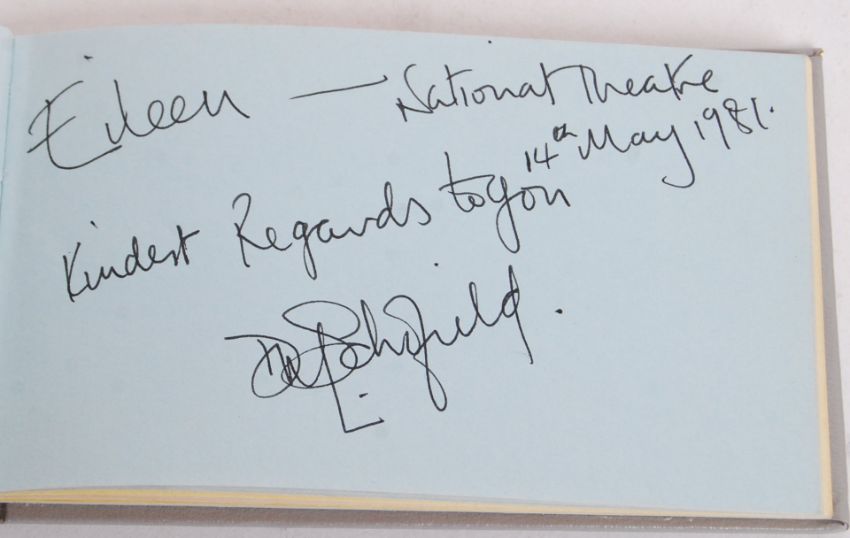 Eileen — National Theatre
14th May 1981.
Kindest Regards to you
Paul Schofield.